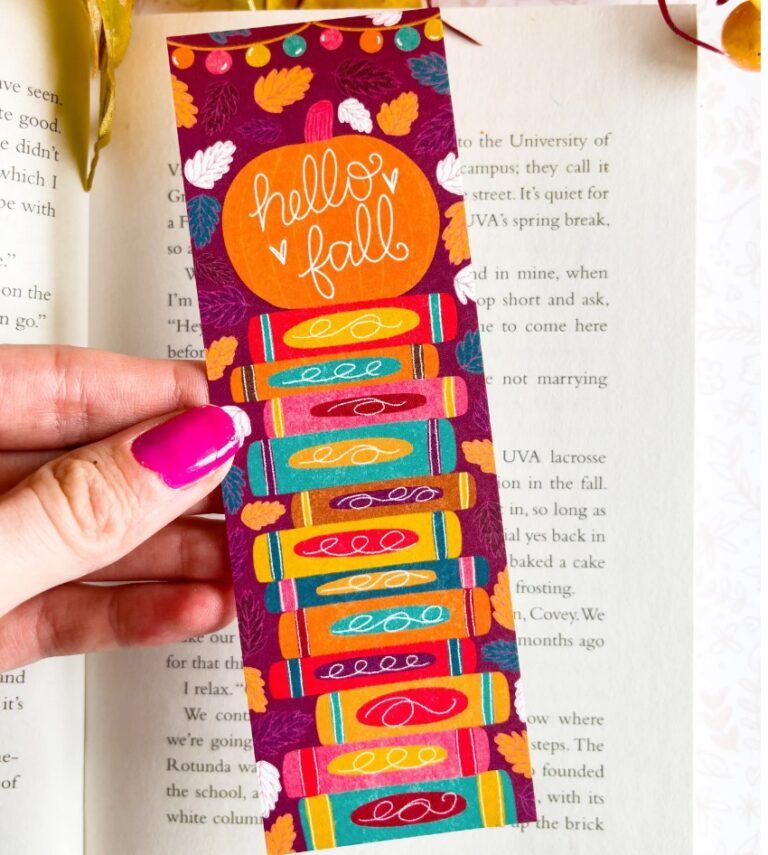 ave seen.
te good.
e didn't
which I
be with
e."
on the
n go."
and
it's
of
hello
fall
to the University of
campus; they call it
street. It's quiet for
UVA's spring break,
so a
nd in mine, when
I'm
op short and ask,
"Hey
me to come here
before
e not marrying
UVA lacrosse
ion in the fall.
in, so long as
ial yes back in
baked a cake
frosting.
n, Covey. We
ke our
months ago
for that thr
I relax. "
We cont
ow where
we're going
steps. The
Rotunda wa
founded
the school, a
, with its
white colum
up the brick